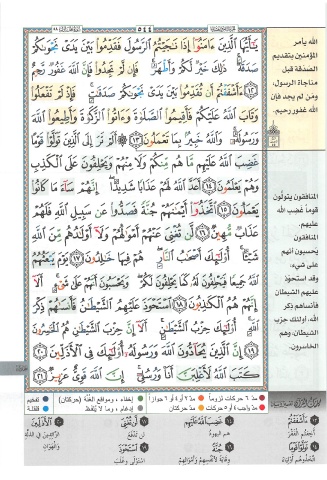 ٥٤٤
يَـٰٓأَيُّهَا ٱلَّذِينَ ءَامَنُوٓا۟ إِذَا نَـٰجَيْتُمُ ٱلرَّسُولَ فَقَدِّمُوا۟ بَيْنَ يَدَىْ نَجْوَىٰكُمْ
صَدَقَةً ۚ ذَٰلِكَ خَيْرٌ لَّكُمْ وَأَطْهَرُ ۚ فَإِن لَّمْ تَجِدُوا۟ فَإِنَّ ٱللَّهَ غَفُورٌ رَّحِيمٌ
١٢ ءَأَشْفَقْتُمْ أَن تُقَدِّمُوا۟ بَيْنَ يَدَىْ نَجْوَىٰكُمْ صَدَقَـٰتٍ ۚ فَإِذْ لَمْ تَفْعَلُوا۟
وَتَابَ ٱللَّهُ عَلَيْكُمْ فَأَقِيمُوا۟ ٱلصَّلَوٰةَ وَءَاتُوا۟ ٱلزَّكَوٰةَ وَأَطِيعُوا۟ ٱللَّهَ
وَرَسُولَهُۥ ۚ وَٱللَّهُ خَبِيرٌۢ بِمَا تَعْمَلُونَ ١٣ ۞ أَلَمْ تَرَ إِلَى ٱلَّذِينَ تَوَلَّوْا۟ قَوْمًا
غَضِبَ ٱللَّهُ عَلَيْهِم مَّا هُم مِّنكُمْ وَلَا مِنْهُمْ وَيَحْلِفُونَ عَلَى ٱلْكَذِبِ
وَهُمْ يَعْلَمُونَ ١٤ أَعَدَّ ٱللَّهُ لَهُمْ عَذَابًا شَدِيدًا ۖ إِنَّهُمْ سَآءَ مَا كَانُوا۟
يَعْمَلُونَ ١٥ ٱتَّخَذُوٓا۟ أَيْمَـٰنَهُمْ جُنَّةً فَصَدُّوا۟ عَن سَبِيلِ ٱللَّهِ فَلَهُمْ
عَذَابٌ مُّهِينٌ ١٦ لَّن تُغْنِىَ عَنْهُمْ أَمْوَٰلُهُمْ وَلَآ أَوْلَـٰدُهُم مِّنَ ٱللَّهِ
شَيْـًٔا ۚ أُو۟لَـٰٓئِكَ أَصْحَـٰبُ ٱلنَّارِ ۖ هُمْ فِيهَا خَـٰلِدُونَ ١٧ يَوْمَ يَبْعَثُهُمُ
ٱللَّهُ جَمِيعًا فَيَحْلِفُونَ لَهُۥ كَمَا يَحْلِفُونَ لَكُمْ ۖ وَيَحْسَبُونَ أَنَّهُمْ عَلَىٰ شَىْءٍ ۚ أَلَآ
إِنَّهُمْ هُمُ ٱلْكَـٰذِبُونَ ١٨ ٱسْتَحْوَذَ عَلَيْهِمُ ٱلشَّيْطَـٰنُ فَأَنسَىٰهُمْ ذِكْرَ
ٱللَّهِ ۚ أُو۟لَـٰٓئِكَ حِزْبُ ٱلشَّيْطَـٰنِ ۚ أَلَآ إِنَّ حِزْبَ ٱلشَّيْطَـٰنِ هُمُ ٱلْخَـٰسِرُونَ
١٩ إِنَّ ٱلَّذِينَ يُحَآدُّونَ ٱللَّهَ وَرَسُولَهُۥٓ أُو۟لَـٰٓئِكَ فِى ٱلْأَذَلِّينَ ٢٠
كَتَبَ ٱللَّهُ لَأَغْلِبَنَّ أَنَا۠ وَرُسُلِىٓ ۚ إِنَّ ٱللَّهَ قَوِىٌّ عَزِيزٌ ٢١
الله يأمر
المؤمنين بتقديم
الصدقة قبل
مناجاة الرسول،
ومن لم يجد فإن
الله غفور رحيم.
المنافقون يتولّون
قوماً غضب الله
عليهم.
المنافقون
يُحسبون أنهم
على شيء،
وقد استحوذ
عليهم الشيطان
فأنساهم ذكر
الله، أولئك حزب
الشيطان، وهم
الخاسرون.
مدّ ٦ حركات لزوماً
مدّ ٢ أو ٤ أو ٦ جوازاً
إخفاء، ومواقع الغُنّة (حركتان)
تفخيم
مدّ حركتان
إدغام، وما لا يُلفظ
قلقلة